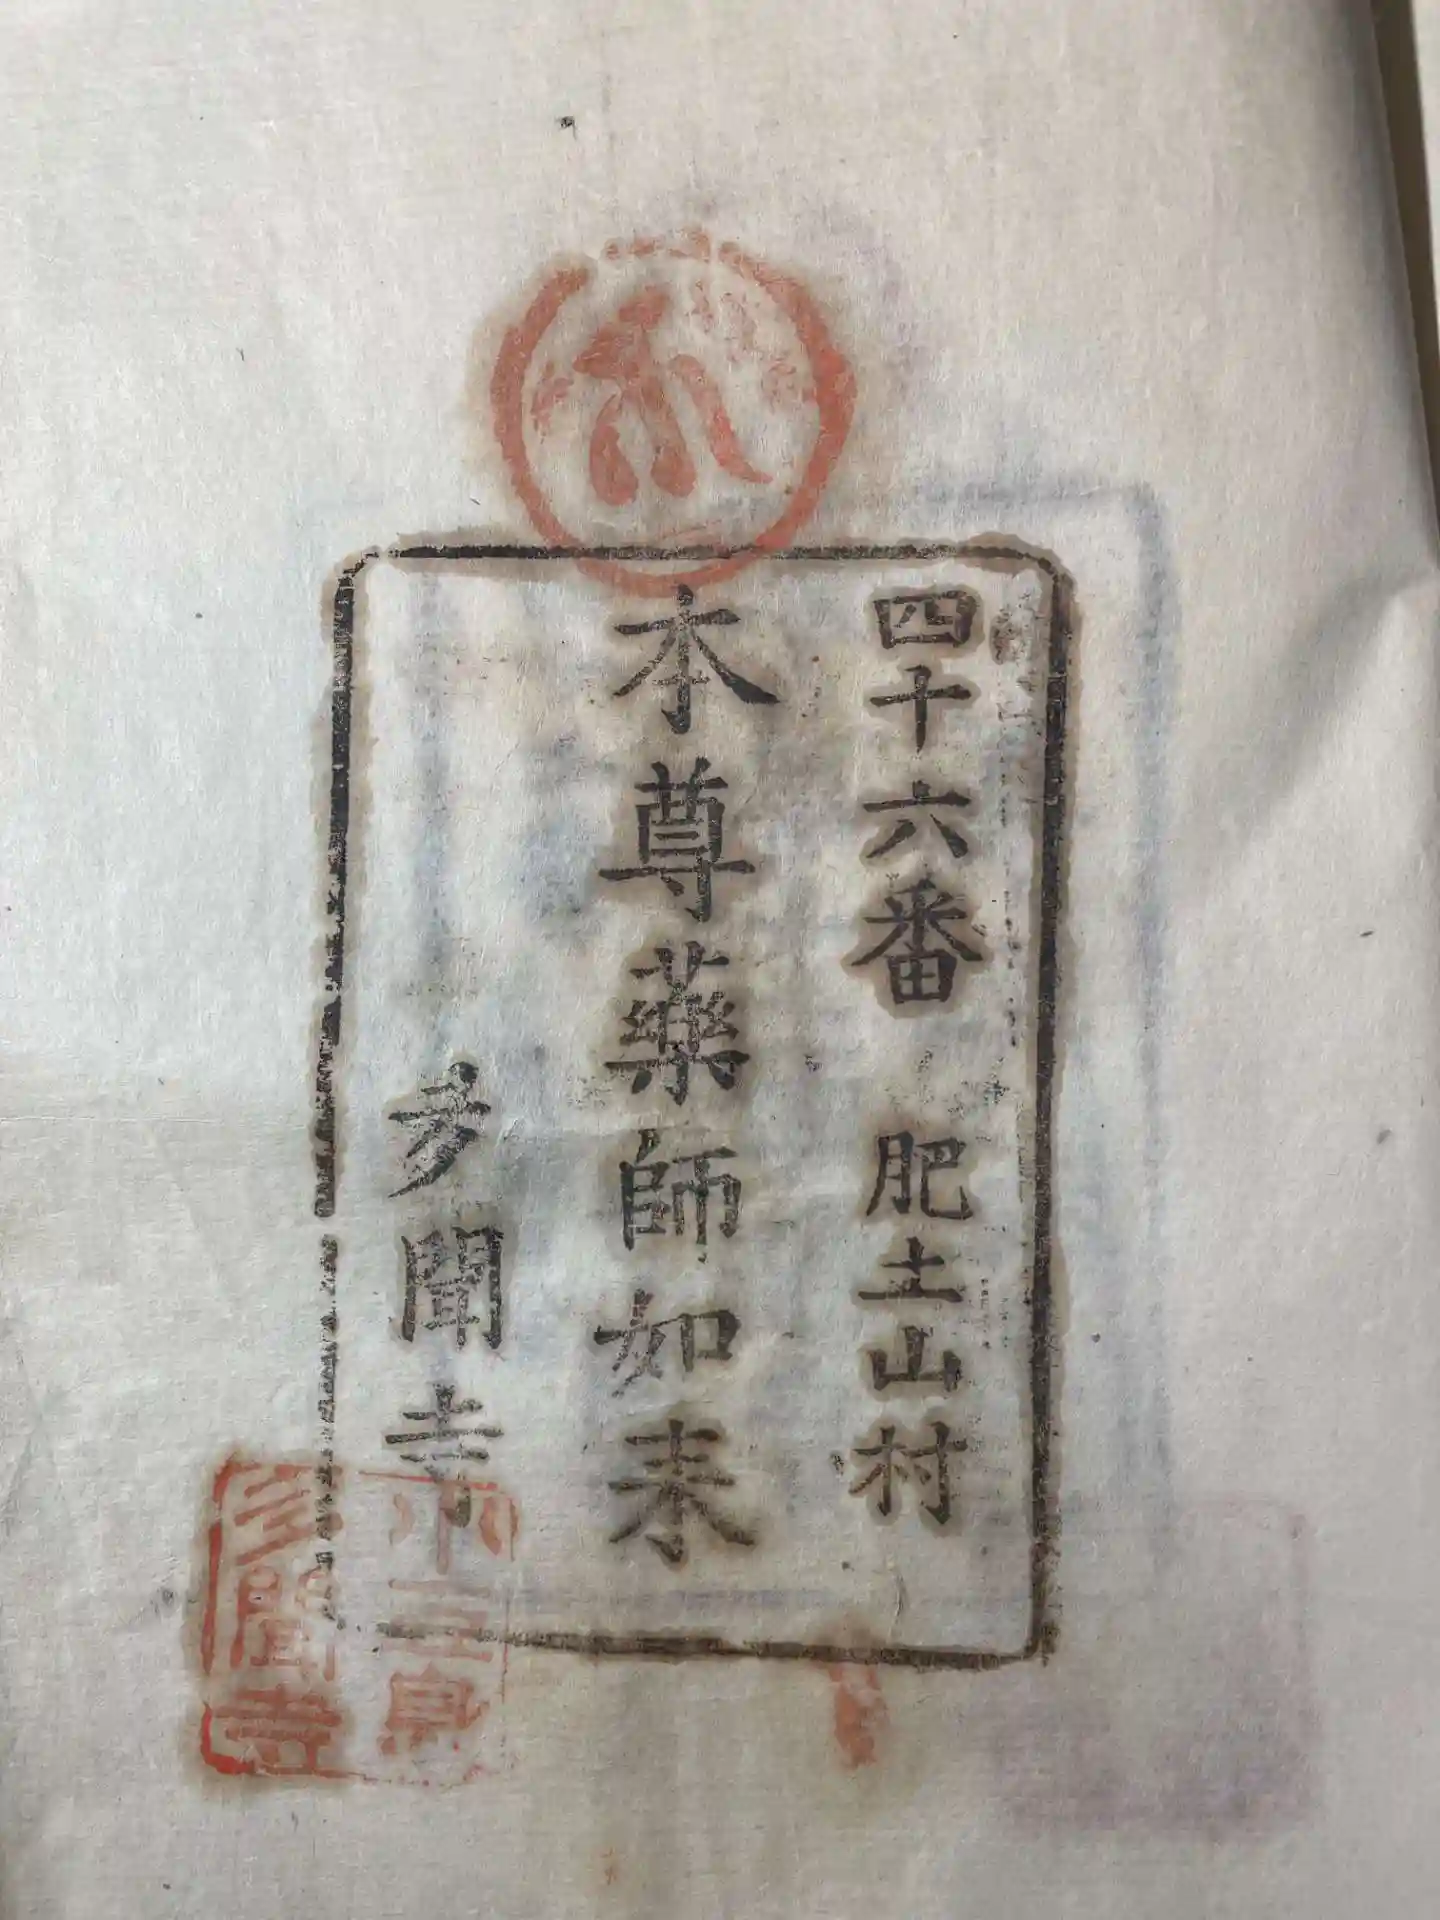 四十六番 肥土山村
本尊藥師如来
多聞寺
小豆島
多聞寺